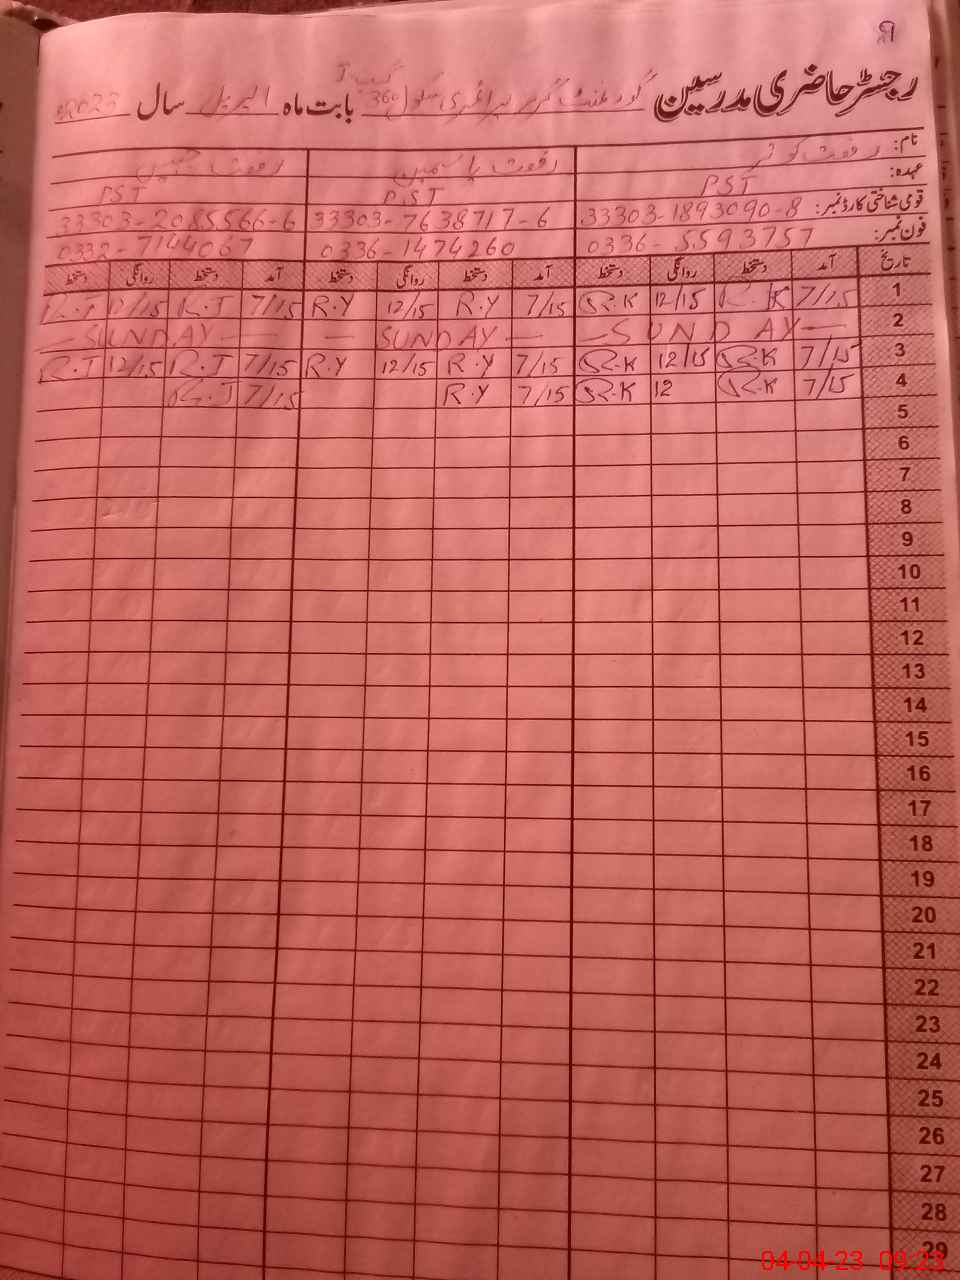 9
رجسٹر حاضری مدرسین گورنمنٹ گرلز پرائمری سکول 360 گ ب بابت ماہ اپریل سال 2023
نام: رفعت کوثر رفعت یاسمین رفعت جبیں
عہدہ: PST PST PST
قومی شناختی کارڈ نمبر: 33303-1893090-8 33303-7638717-6 33303-2085566-6
فون نمبر: 0336-5593757 0336-1474260 0332-7144067
تاریخ آمد دستخط روانگی دستخط آمد دستخط روانگی دستخط آمد دستخط روانگی دستخط
1 7/15 R.K 12/15 R.K 7/15 R.Y 12/15 R.Y 7/15 R.J 12/15 R.J
2 — SUNDAY — — SUNDAY — — SUNDAY —
3 7/15 R.K 12/15 R.K 7/15 R.Y 12/15 R.Y 7/15 R.J 12/15 R.J
4 7/15 R.K 12 R.K 7/15 R.Y 7/15 R.J
5
6
7
8
9
10
11
12
13
14
15
16
17
18
19
20
21
22
23
24
25
26
27
28
29
04-04-23 09:23